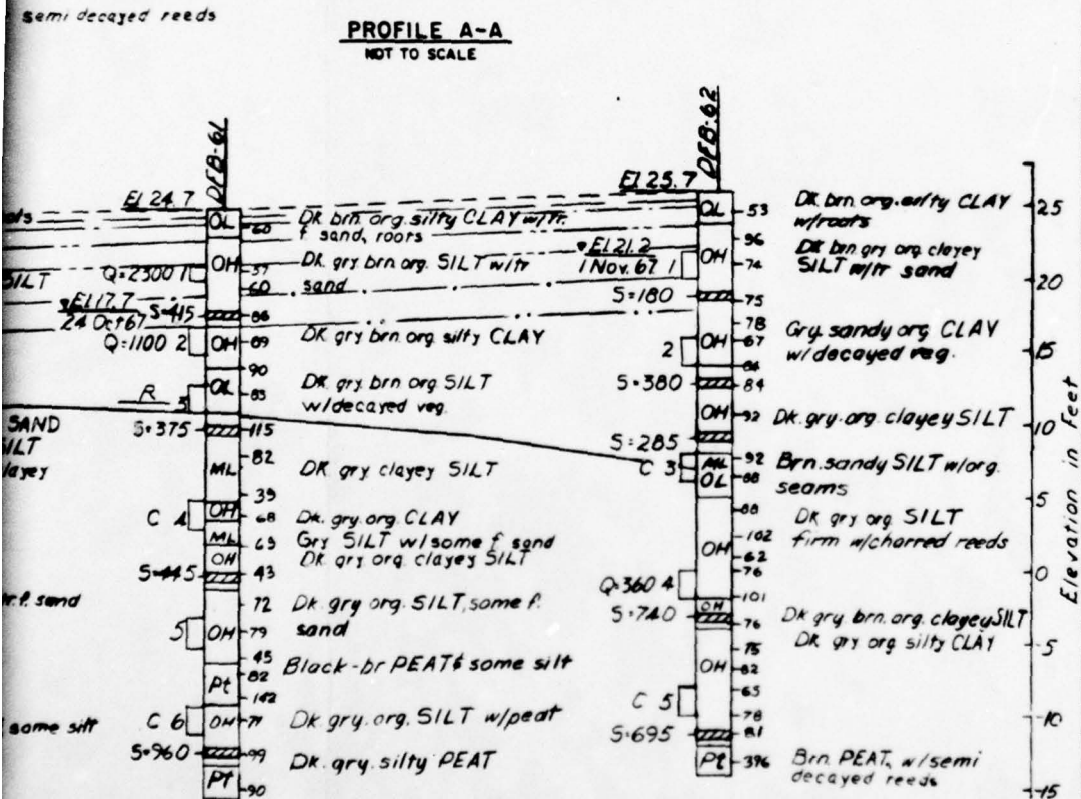 semi decayed reeds
PROFILE A-A
NOT TO SCALE
DEB-61
El 24.7
OL
60
DK brn. org. silty CLAY w/tr.
f. sand, roots
OH
Q=2300 1
57
60
DK gry brn org. SILT w/tr
sand
SILT
El 17.7
24 Oct 67
S=415
86
Q=1100 2
OH
89
DK gry brn org silty CLAY
90
R
3
OL
83
DK gry brn org SILT
w/decayed veg.
SAND
SILT
S=375
115
ML
82
DK gry clayey SILT
39
C 4
OH
68
Dk. gry. org. CLAY
ML
69
Gry SILT w/some f sand
OH
Dk gry org clayey SILT
S=445
43
f. sand
72
Dk. gry org. SILT, some f.
sand
5
OH
79
45
Black-br PEAT & some silt
82
Pt
142
some silt
C 6
OH
71
Dk gry. org. SILT w/peat
S=960
99
Dk. gry. silty PEAT
Pt
90
DEB-62
El 25.7
OL
53
Dk. brn org. silty CLAY
w/roots
96
El 21.2
1 Nov. 67 1
OH
74
Dk brn gry org clayey
SILT w/tr sand
S=180
75
78
2
OH
67
Gry. sandy org CLAY
w/ decayed veg.
84
S=380
84
OH
92
Dk. gry. org. clayey SILT
S=285
C 3
ML
92
OL
88
Brn. sandy SILT w/org.
seams
88
Dk gry org SILT
firm w/charred reeds
102
OH
62
76
Q=360 4
101
OH
S=740
76
Dk gry brn. org. clayey SILT
Dk gry org silty CLAY
75
OH
82
65
C 5
78
S=695
81
Pt
396
Brn PEAT, w/semi
decayed reeds
25
20
15
10
5
0
-5
-10
-15
Elevation in Feet